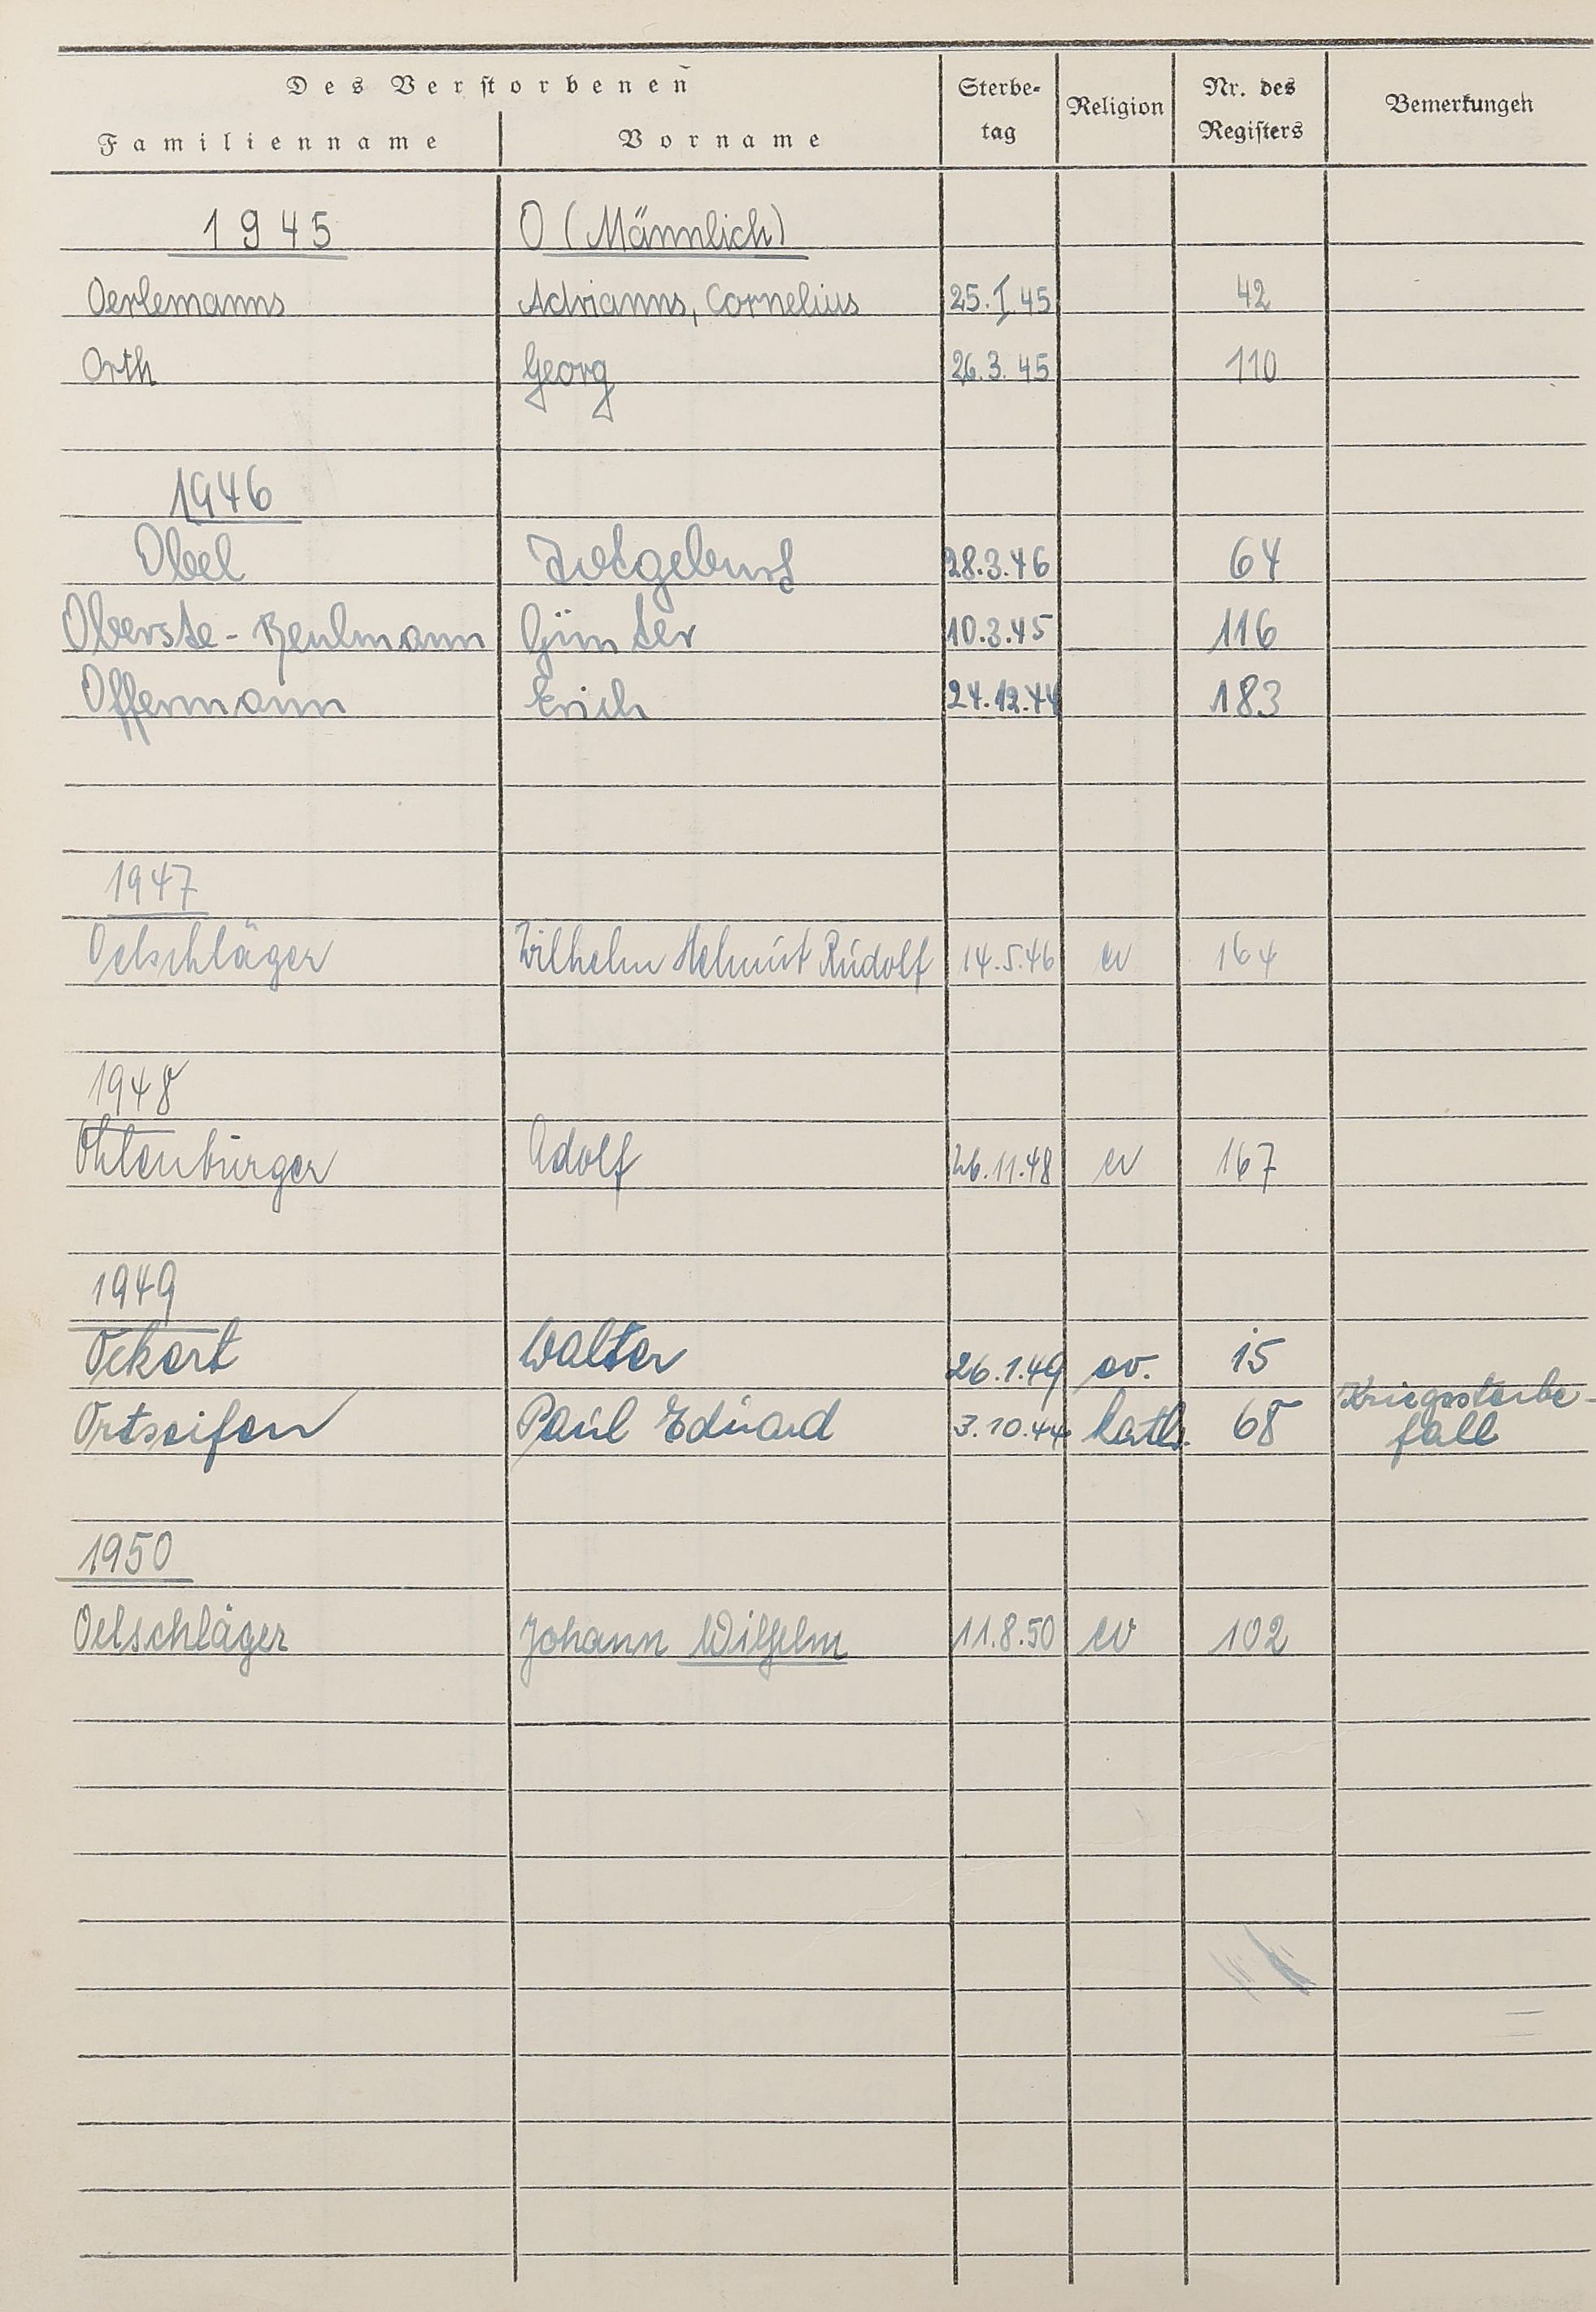 Des Verstorbenen
Familienname Vorname Sterbe-tag Religion Nr. des Registers Bemerkungen
1945 O (Männlich)
Oerlemanns Adrianns, Cornelius 25.I.45 42
Orth Georg 26.3.45 110
1946
Obel Totgeburt 28.3.46 64
Oberste- Günter 10.3.45 116
Offermann Erich 24.12.44 183
1947
Oelschläger Wilhelm Helmut Rudolf 14.5.46 ev 164
1948
Ohlenburger Adolf 26.11.48 ev 167
1949
Oekert Walter 26.1.49 ev. 15
Ortseifen Paul Eduard 3.10.44 kath. 68 Kriegssterbe-
fall
1950
Oelschläger Johann Wilhelm 11.8.50 ev 102